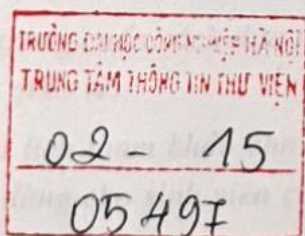 TRƯỜNG ĐẠI HỌC CÔNG NGHIỆP HÀ NỘI
TRUNG TÂM THÔNG TIN THƯ VIỆN
02- 15
05497